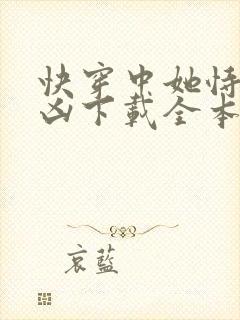 快穿中她恃
凶下载全本
哀蓝